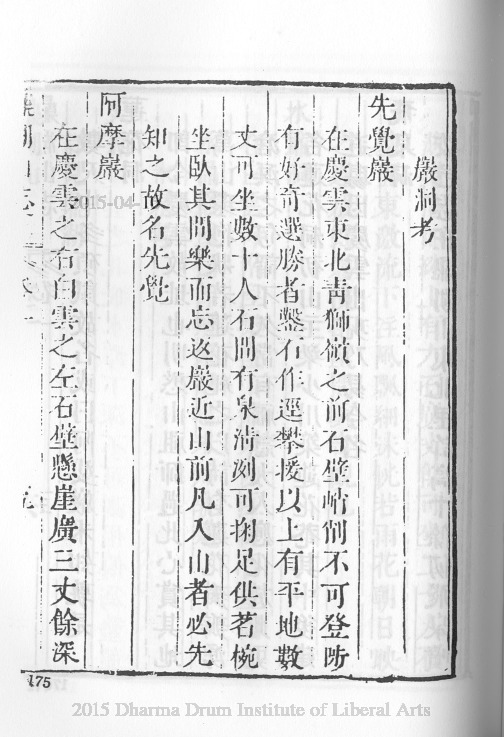 巖洞考
先覺巖
在慶雲東北靑獅嶺之前石壁峭削不可登陟
有好奇選勝者鑿石作逕攀援以上有平地數
丈可坐數十人石間有泉淸冽可掬足供茗椀
坐臥其間樂而忘返巖近山前凡入山者必先
知之故名先覺
阿摩巖
在慶雲之右白雲之左石壁懸崖廣三丈餘深
2015-04-
175
2015 Dharma Drum Institute of Liberal Arts